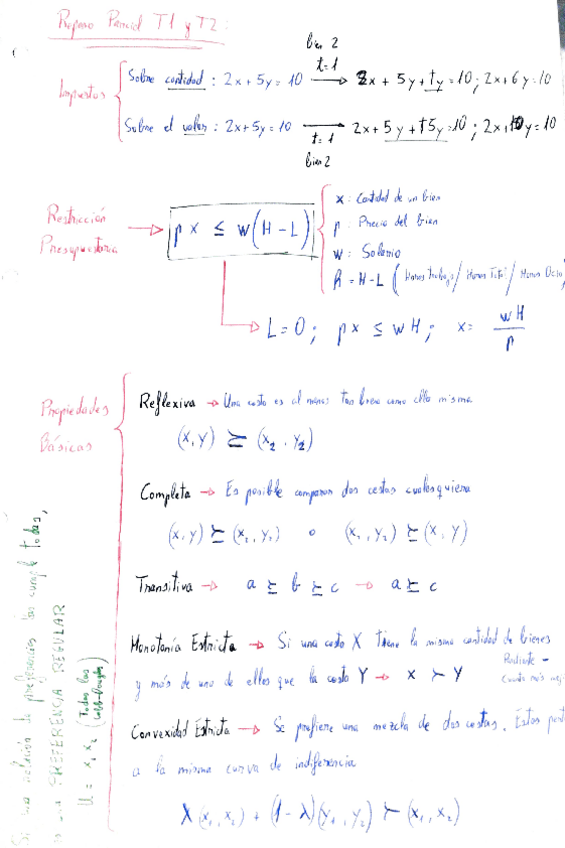 Repaso Parcial T1 y T2:
bien 2
Impuestos
Sobre cantidad: 2x + 5y = 10 t=1 → 2x + 5y + ty = 10; 2x + 6y = 10
Sobre el valor: 2x + 5y = 10 t=1 → 2x + 5y + t5y = 10; 2x + 10y = 10
bien 2
Restricción Presupuestaria → px ≤ w(H-L)
x: Cantidad de un bien
p: Precio del bien
w: Salario
R = H-L (Horas trabajo / Horas Total / Horas Ocio)
L=0; px ≤ wH; x = wH/p
Propiedades Básicas
Reflexiva → Una cesta es al menos tan buena como ella misma
(x, y) ⪰ (x₂, y₂)
Completa → Es posible comparar dos cestas cualesquiera
(x, y) ⪰ (x₂, y₂) o (x₂, y₂) ⪰ (x, y)
Transitiva → a ⪰ b ⪰ c → a ⪰ c
Monotonía Estricta → Si una cesta X tiene la misma cantidad de bienes
y más de uno de ellos que la cesta Y → x ≻ y
Convexidad Estricta → Se prefiere una mezcla de dos cestas. Estas
a la misma curva de indiferencia
λ(x₁, x₂) + (1-λ)(y₁, y₂) ≻ (x₁, x₂)
Si una relación de preferencias las cumple todas,
es una PREFERENCIA REGULAR
U = x₁ x₂ (Todas las Cobb-Douglas)